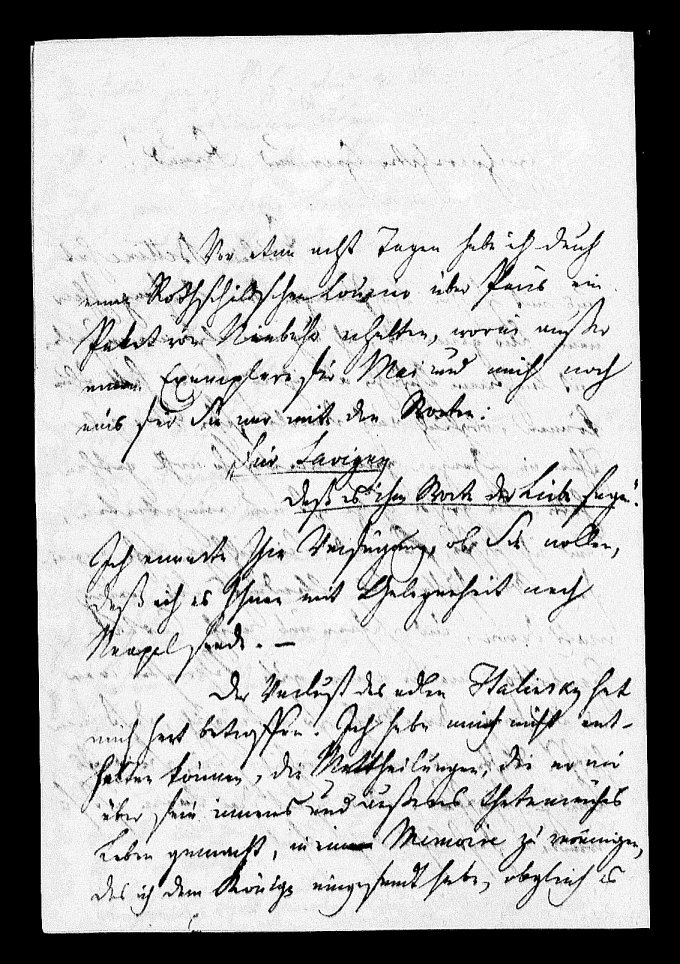 Vor etwa acht Tagen habe ich durch
einen Rothschildschen Courier über Paris ein
Paket von Niebuhr erhalten, worin außer
einem Exemplare für Mai und mich noch
eins für Sie war mit den Worten:
„Für Savigny
daß es ihm Worte der Liebe sage“.
Ich erwarte Ihre Verfügung, ob Sie wollen,
daß ich es Ihnen mit Gelegenheit nach
Neapel sende. —
Der Verlust des edlen Italinsky hat
mich hart betroffen. Ich habe mich nicht ent-
halten können, die Mittheilungen, die er mir
über sein inneres und äußeres
Leben gemacht, in ein Memoire zu vereinigen,
das ich dem Könige eingesandt habe, obgleich es